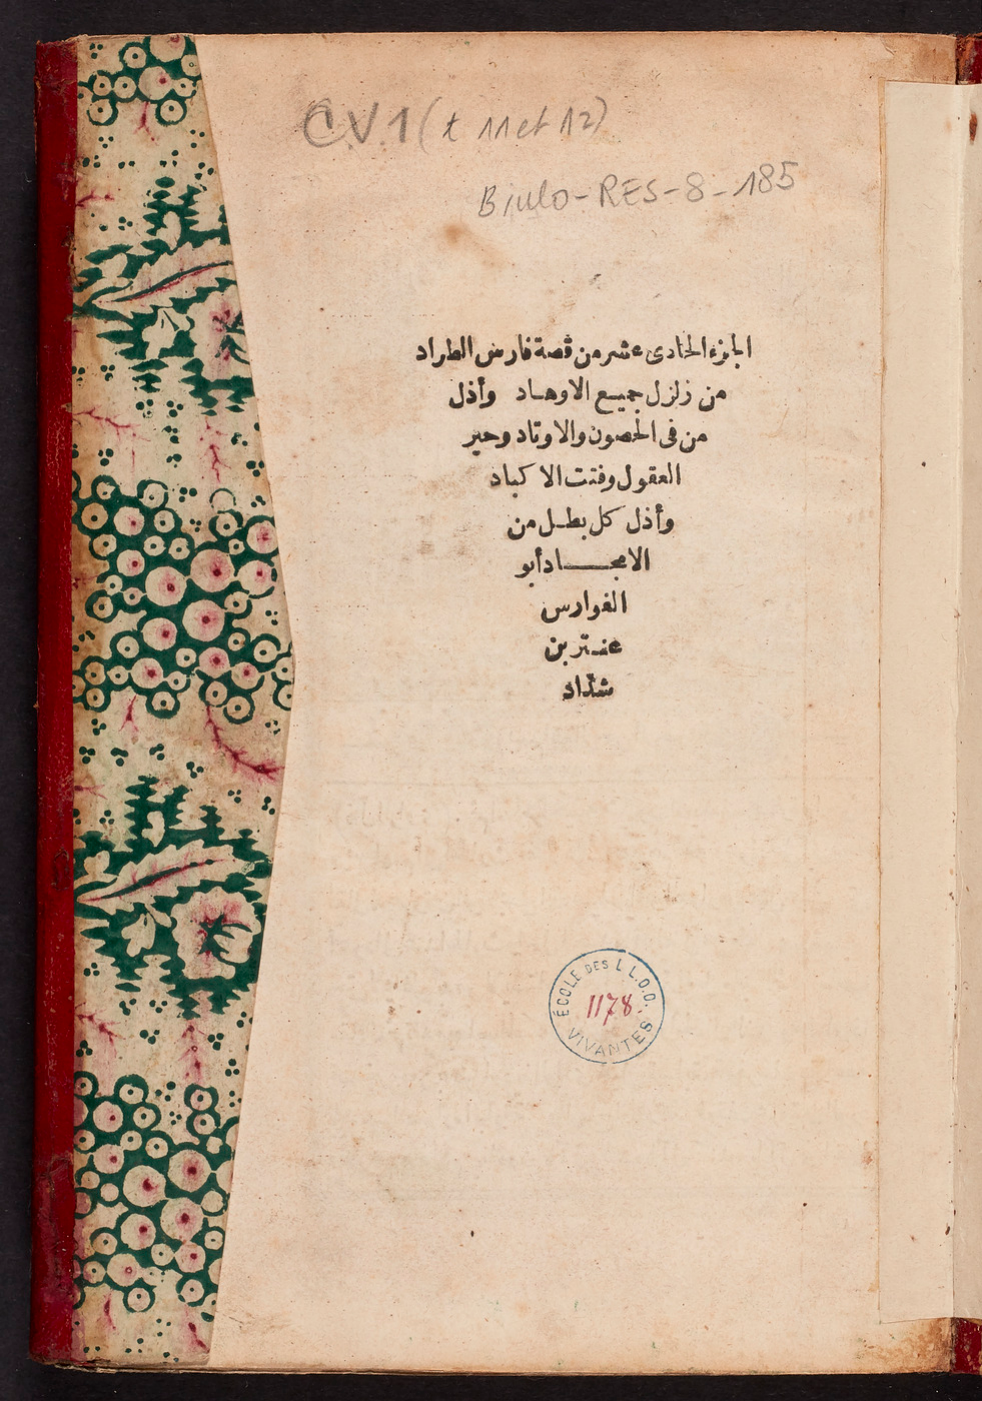 C.V.1 (t 11 et 12)
Biulo-RES-8-185
الجزء الحادى عشر من قصة فارس الطراد
من زلزل جميع الاوهاد وأذل
من فى الحصون والاوتاد وحير
العقول وفتت الاكباد
وأذل كل بطل من
الامجاد أبو
الفوارس
عنتر بن
شدّاد
ÉCOLE DES L L.O.O.
1178.
VIVANTES